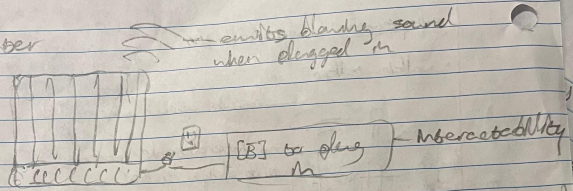 ber
emits blowing sound
when plugged in
[E] to plug
in
Interactability